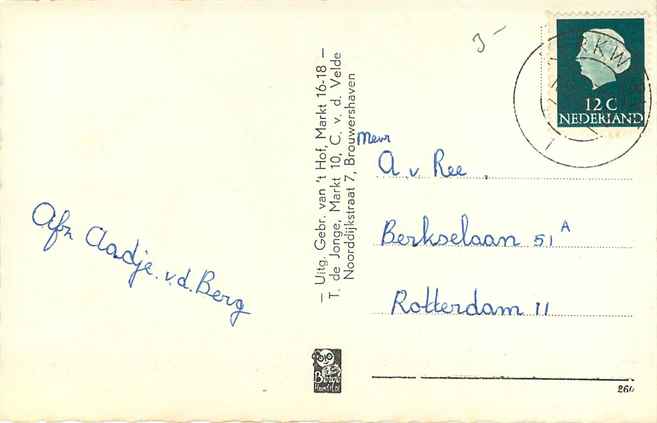 3-
12 C
NEDERLAND
— Uitg. Gebr. van 't Hof, Markt 16-18 —
T. de Jonge, Markt 10, C. v. d. Velde
Noorddijkstraat 7, Brouwershaven
Mevr
A. v Ree
Berkselaan 51 A
Rotterdam 11
Afz Aadje. v.d. Berg